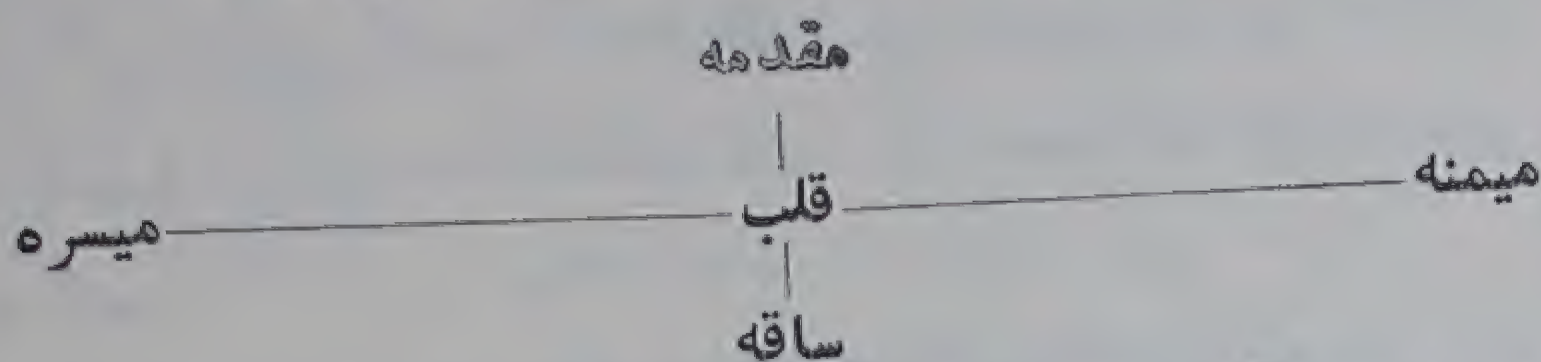 مقدمه
ميمنه
قلب
ميسره
ساقه